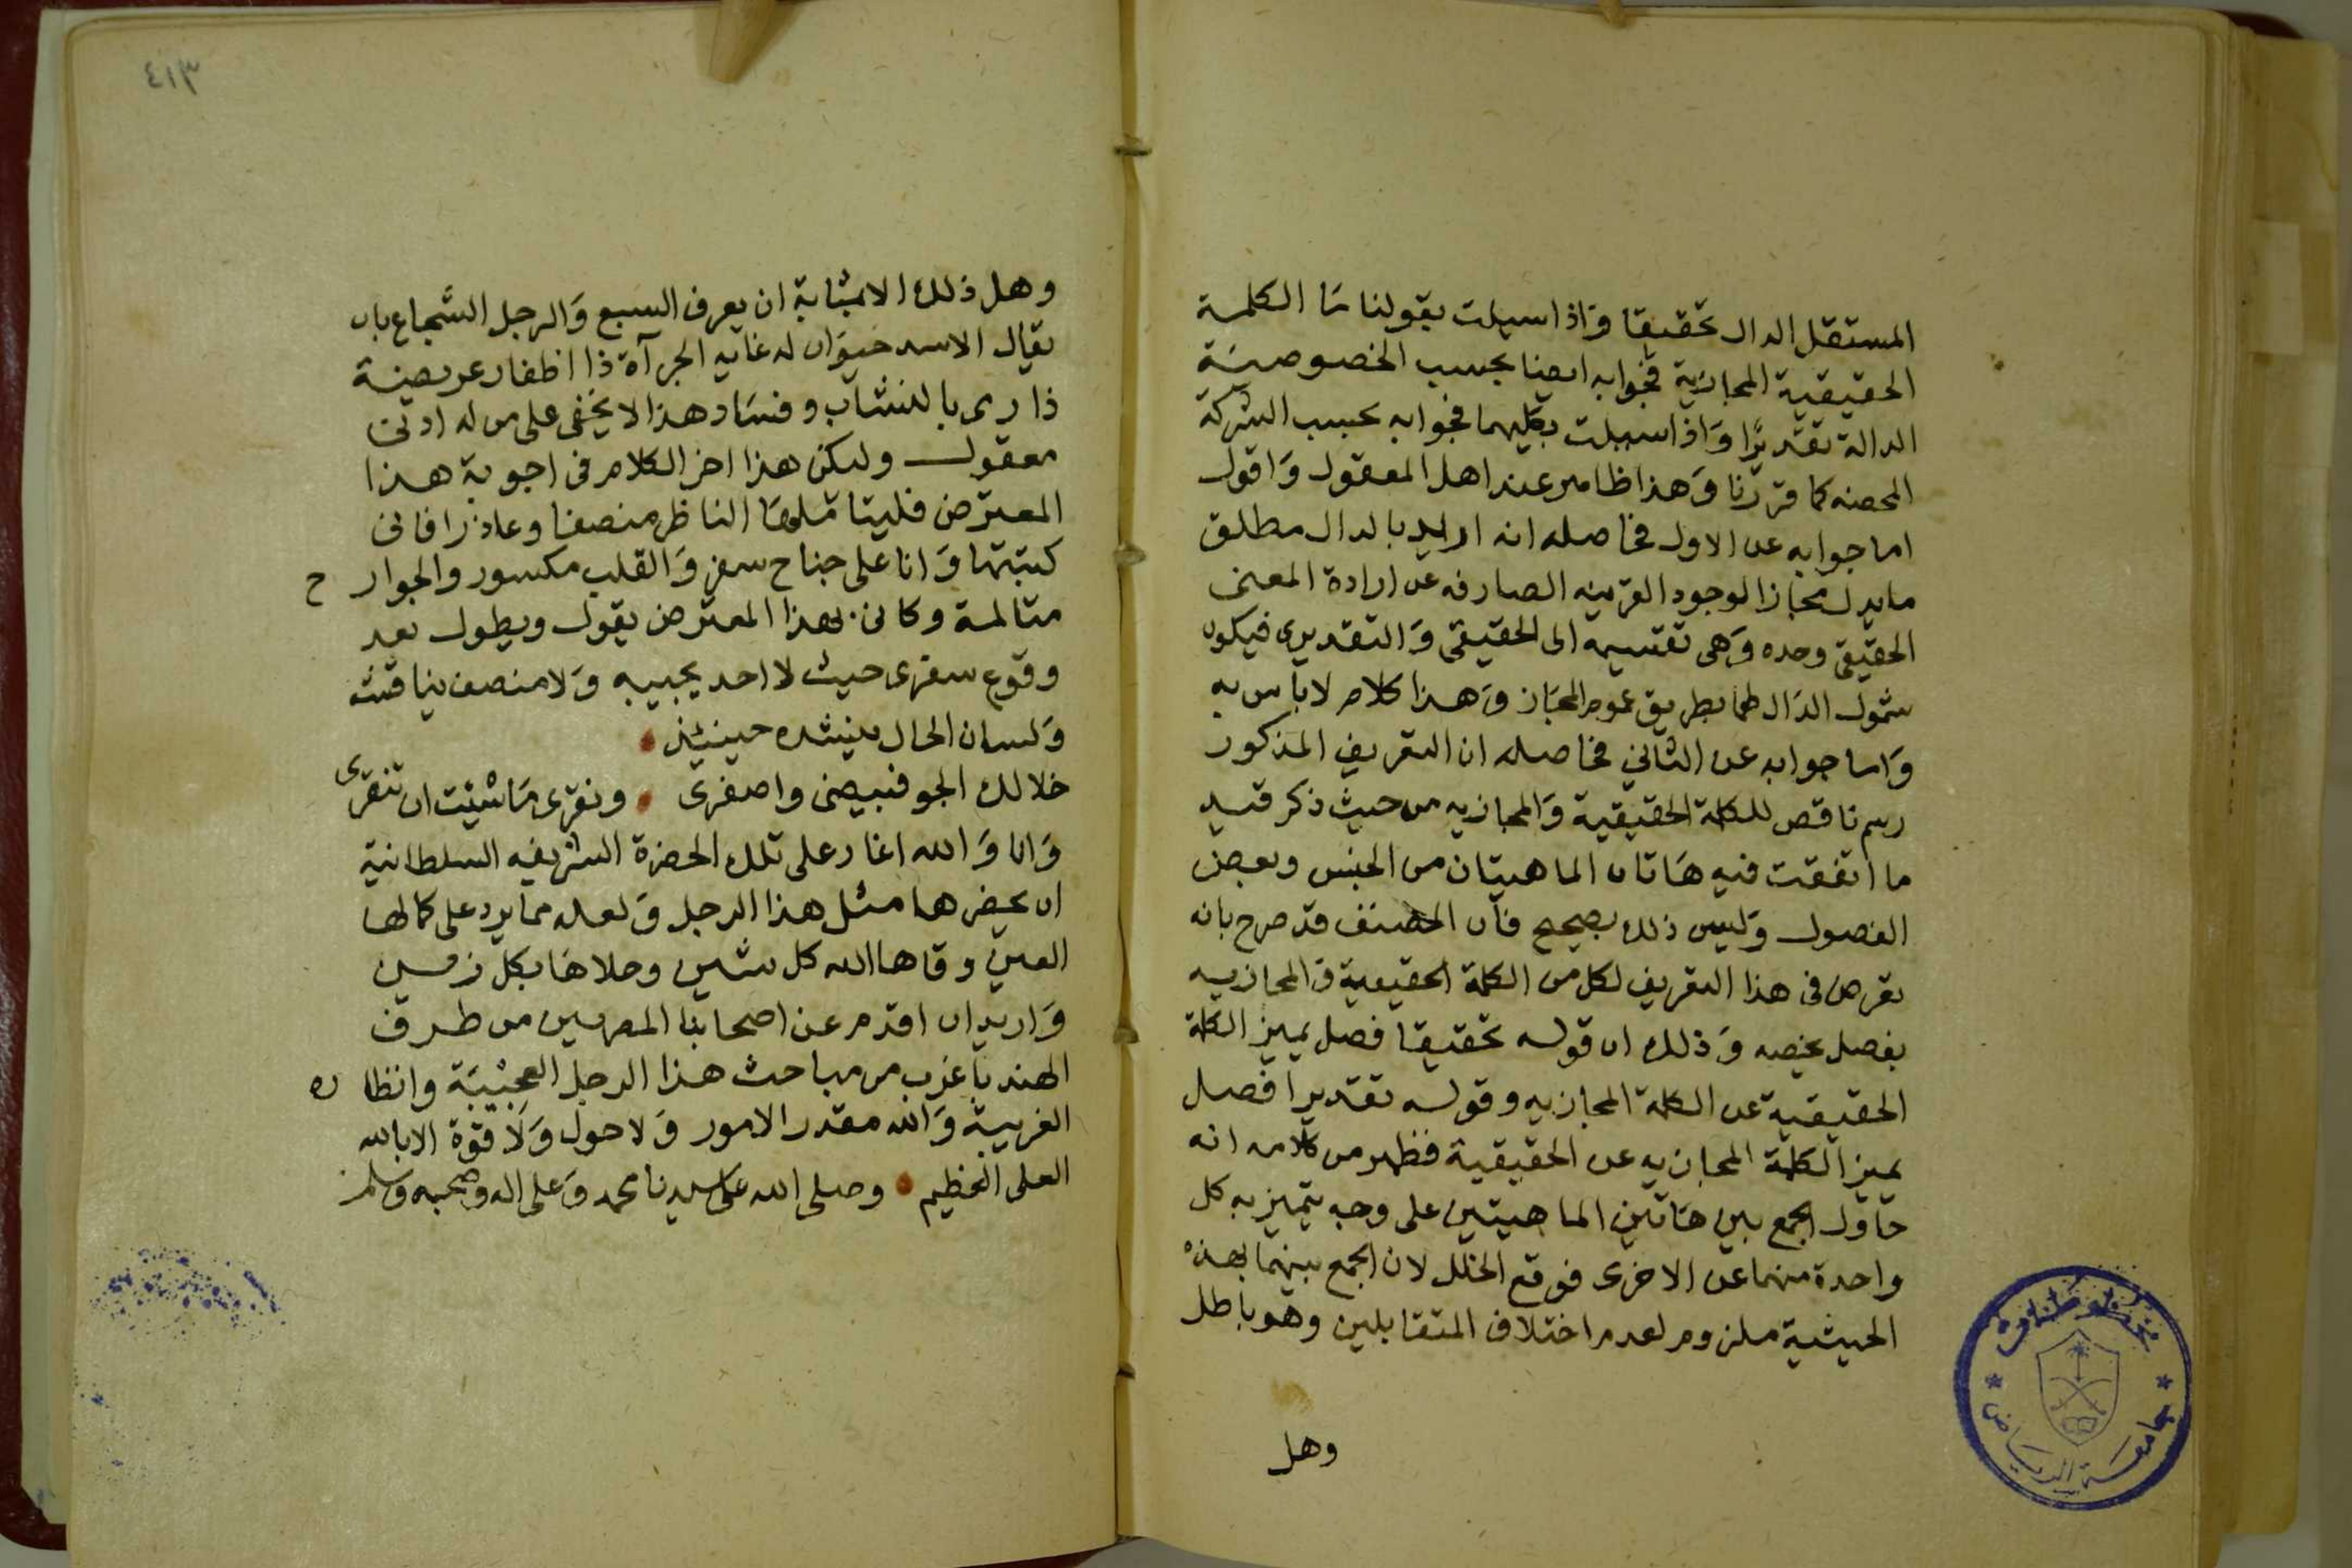 المستقل الدال تحقيقا وَاذا سيلت بقولنا مَا الكلمة
الحقيقية المجازية فجوابه ايضا بحسب الخصوصيَة
الدالة تقديرًا وَاذا سيلت بكليهما فجوابه بحسب الشركة
المحضه كما قررنا وَهذا ظاهر عند اهل المعقول وَاقول
اما جوابه عن الاول فحاصله انه اريد بالدال مطلق
ما يدل مجازا لوجود القرينه الصارفه عن ارادة المعنى
الحقيقى وحده وَهى تقسيمه الى الحقيقى وَالتقديرى فيكون
شمول الدَال لهما بطريق عموم المجَاز وَهذا كلام لا باس به
وَاما جوابه عن الثانى فحاصله ان التعريف المذكور
رسم ناقص للكلمة الحقيقية وَالمجازيه من حيث ذكر قيد
ما اتفقت فيه هَاتان الماهيتان من الجنس وبعض
الفصول وَليس ذلك بصحيح فان المصنف قد صرح بانه
تعرض فى هذا التعريف لكل من الكلمة الحقيقية وَالمجازيه
بفصل يخصه وَذلك ان قوله تحقيقا فصل يميز الكلمة
الحقيقية عن الكلمة المجازيه وقوله تقديرا فصل
يميز الكلمة المجازيه عن الحقيقية فظهر من كلامه انه
حَاول الجمع بين هَاتين الماهيتين على وجه يتميز به كل
واحدة منهما عن الاخرى فوقع الخلل لان الجمع بينهما بهذه
الحيثية ملزوم لعدم اختلاف المتقابلين وهو باطل
وهل
جامعة الرياض
٤١٣
وهل ذلك الا بمثابة ان يعرف السبع وَالرجل الشجاع بان
يقال الاسد حيوَان له غايه الجرآة ذا اظفار عريضة
ذا رمى بالنشاب وفسَاد هذا لا يخفى على من له ادنى
معقول وليكن هذا اخر الكلام فى اجوبة هذا
المعترض فليتاملهَا الناظر منصفا وعاذرا فانى
كتبتها وَانا على جناح سفر وَالقلب مكسور والجوارح
متالمة وكانى بهذا المعترض يقول ويطول بعد
وقوع سفرى حيث لا احد يجيبه وَلا منصف يناقشه
وَلسان الحال ينشده حينئذ
خلا لك الجو فبيضى واصفرى ونقرى مَا شئت ان تنقرى
وَانا وَالله اغار على تلك الحضرة الشريفه السلطانية
ان يحضرها مثل هذا الرجل وَلعله مما يرد على كمالها
العين وقاها الله كل شين وحلاهَا بكل زين
وَاريد ان اقدم عن اصحابنا المصريين من طرف
الهند باغرب من مباحث هذا الرجل العجيبَة وانظاره
الغريبة وَالله مقدر الامور وَلا حول وَلَا قوة الا بالله
العلى العظيم وصلى الله على سيدنا محمد وَعلى اله وصحبه وَسلم